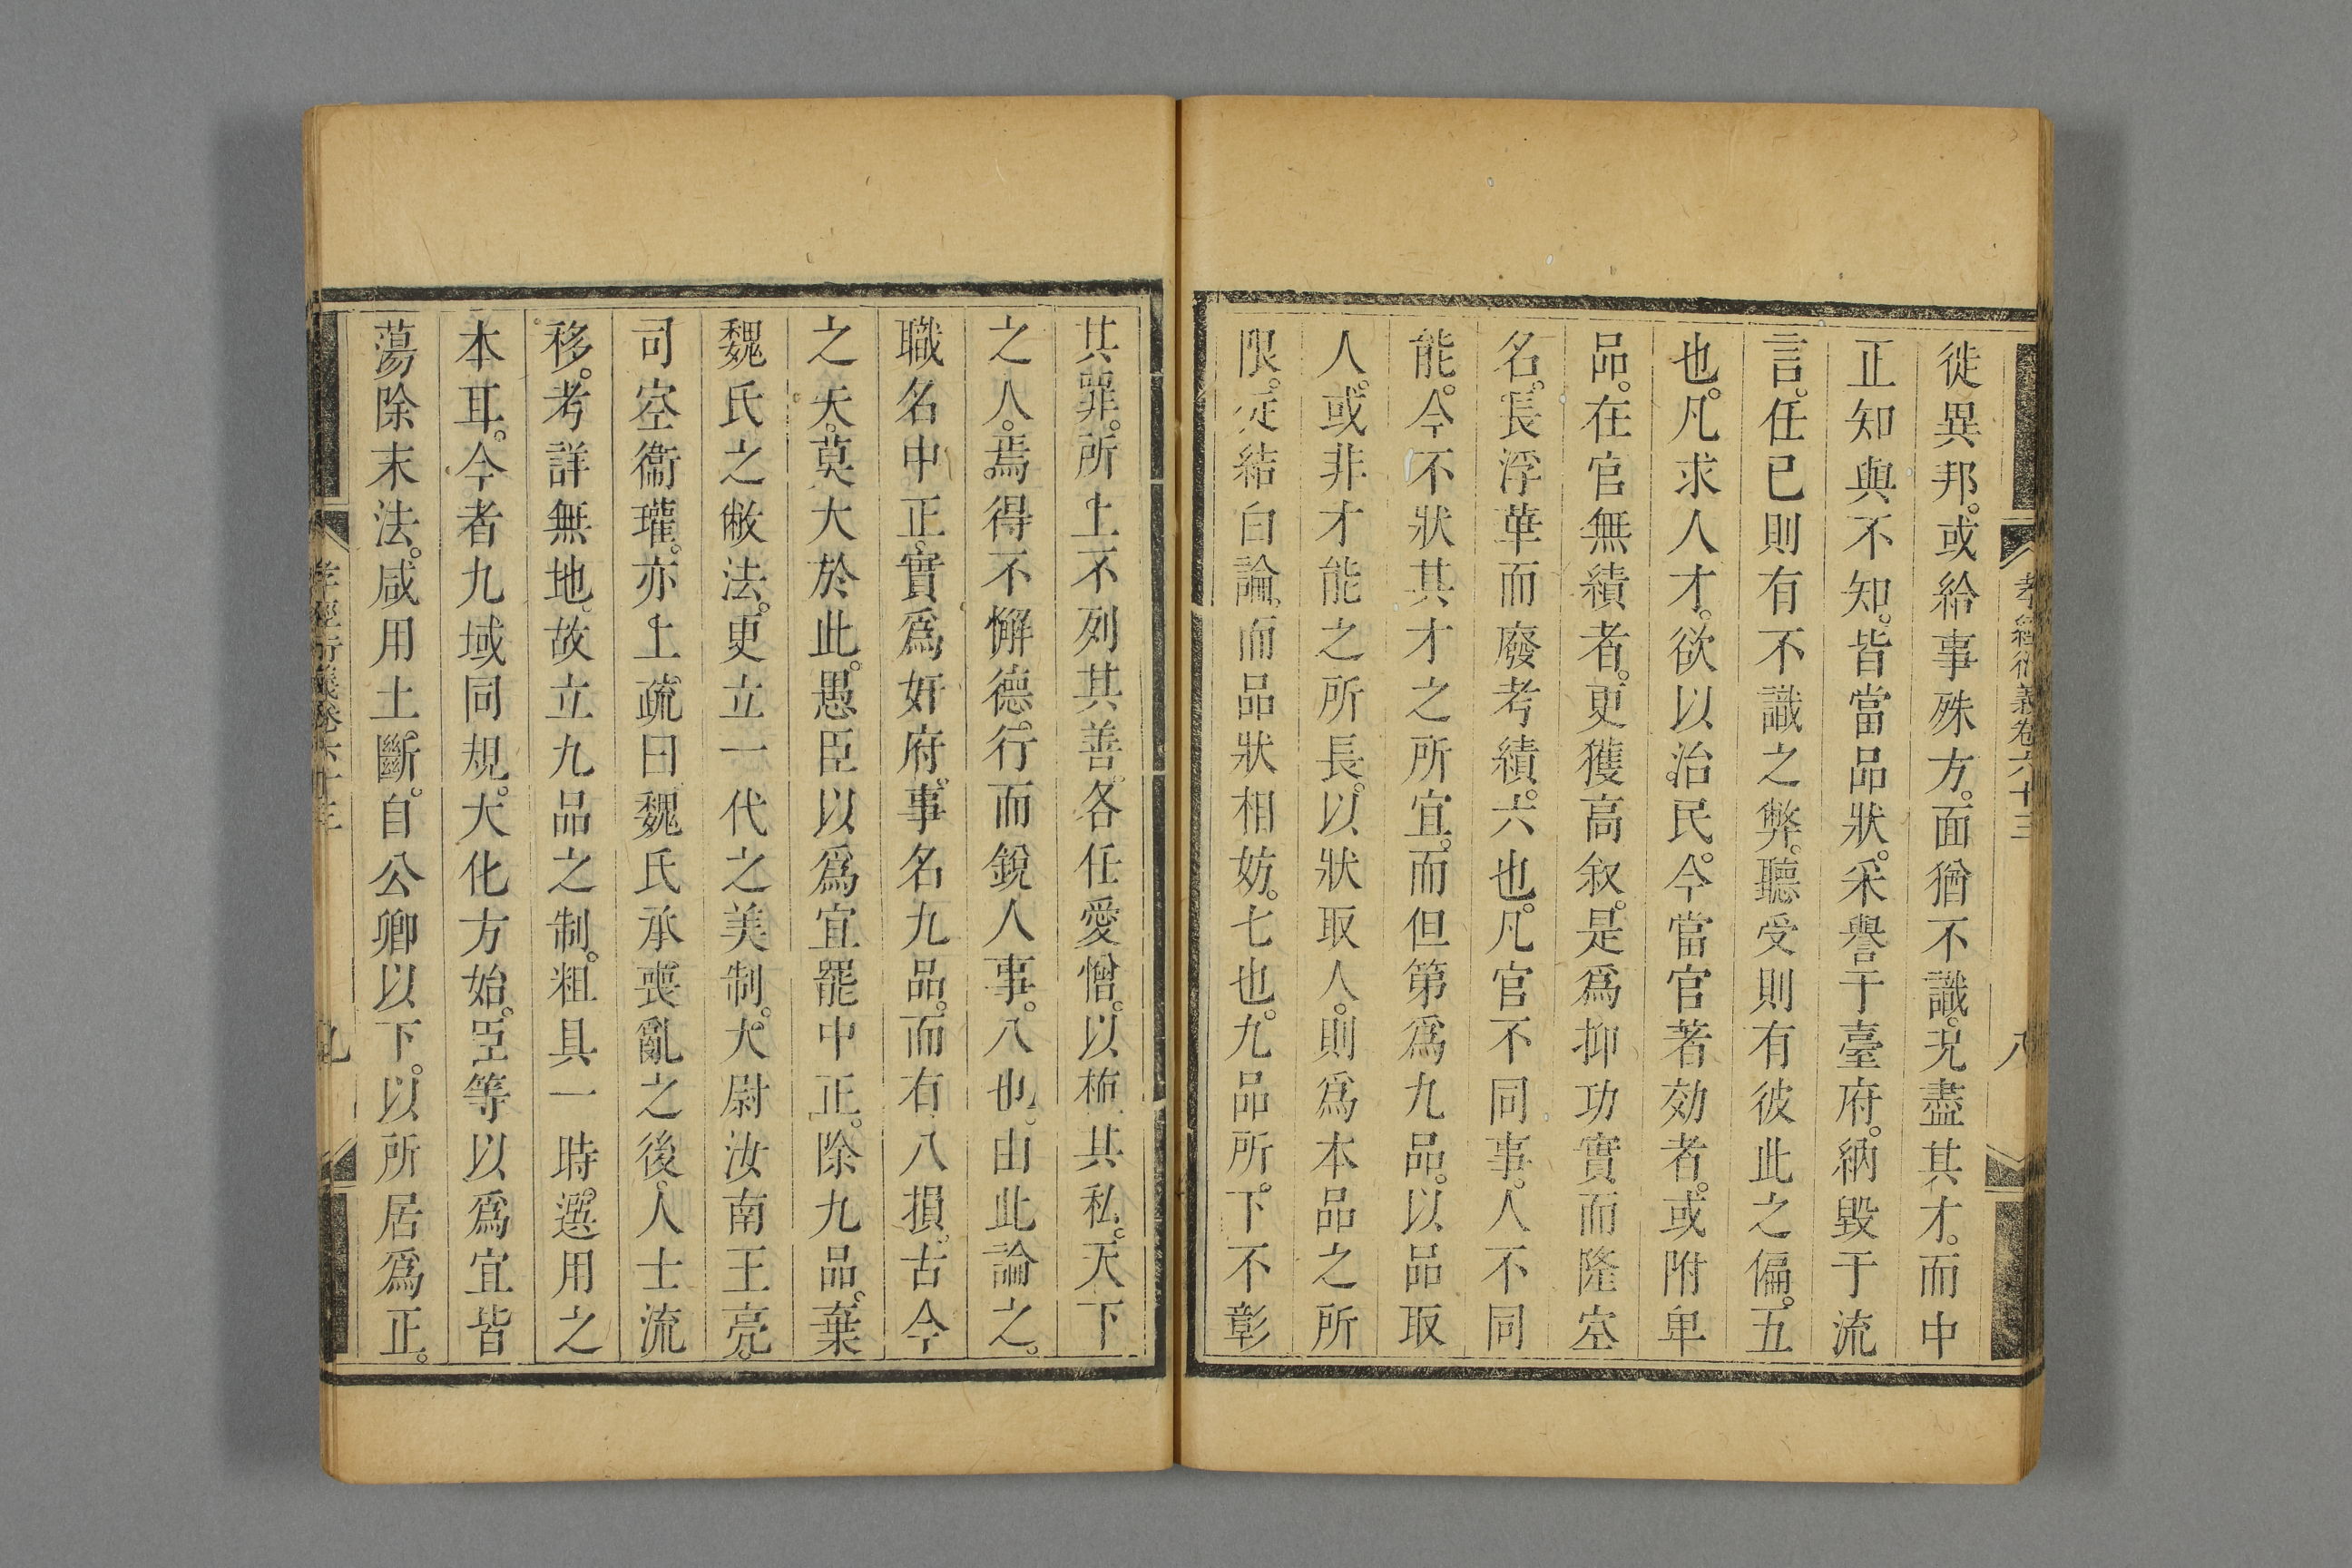 孝經衍義卷六十三
八
徙異邦。或給事殊方。面猶不識。況盡其才。而中
正知與不知。皆當品狀。采譽于臺府。納毀于流
言。任已則有不識之弊。聽受則有彼此之偏。五
也。凡求人才。欲以治民。今當官著効者。或附卑
品。在官無績者。更獲高叙。是爲抑功實而隆空
名。長浮華而廢考績。六也。凡官不同事。人不同
能。今不狀其才之所宜。而但第爲九品。以品取
人。或非才能之所長。以狀取人。則爲本品之所
限。徒結白論。而品狀相妨。七也。九品所下不彰
其罪。所上不列其善。各任愛憎。以植其私。天下
之人。焉得不懈德。行而銳人事。八也。由此論之。
職名中正。實爲奸府。事名九品。而有八損。古今
之失。莫大於此。愚臣以爲宜罷中正。除九品。棄
魏氏之敝法。更立一代之美制。太尉汝南王亮。
司空衞瓘。亦上疏曰魏氏承喪亂之後。人士流
移。考詳無地。故立九品之制。粗具一時。選用之
本耳。今者九域同規。大化方始。臣等以爲宜皆
蕩除末法。咸用土斷。自公卿以下。以所居爲正。
孝經衍義卷六十三
九